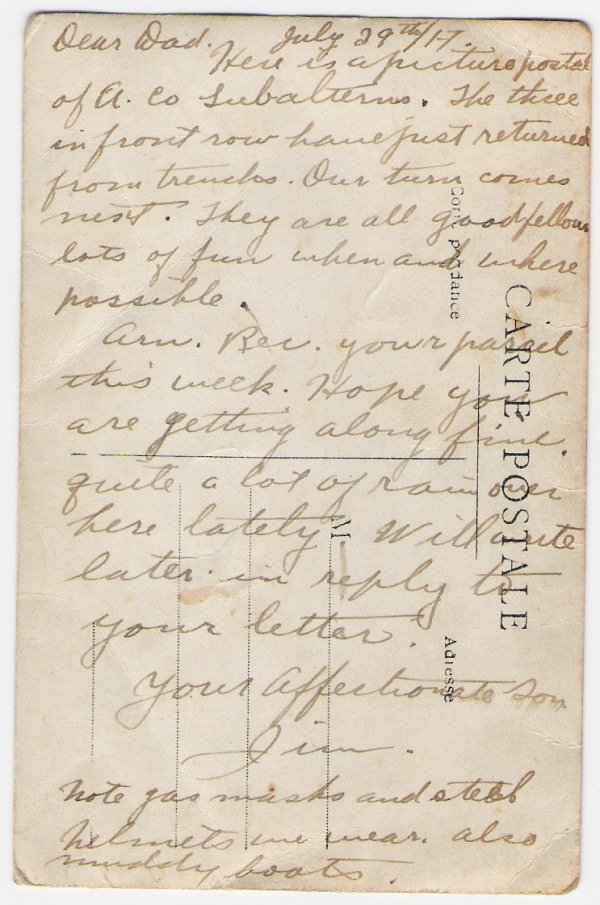 Dear Dad. July 29th/17.
Here is a picture postal
of A. Co Subalterns. The three
in front row have just returned
from trenches. Our turn comes
next. They are all good fellows
lots of fun when and where
possible.
Am. Rec. your parcel
this week. Hope you
are getting along fine.
quite a lot of rain over
here lately. Will write
later in reply to
your letter.
Your affectionate Son
Jim.
Note gas masks and steel
helmets we wear. also
muddy boots.
CARTE POSTALE
Correspondance
M
Adresse